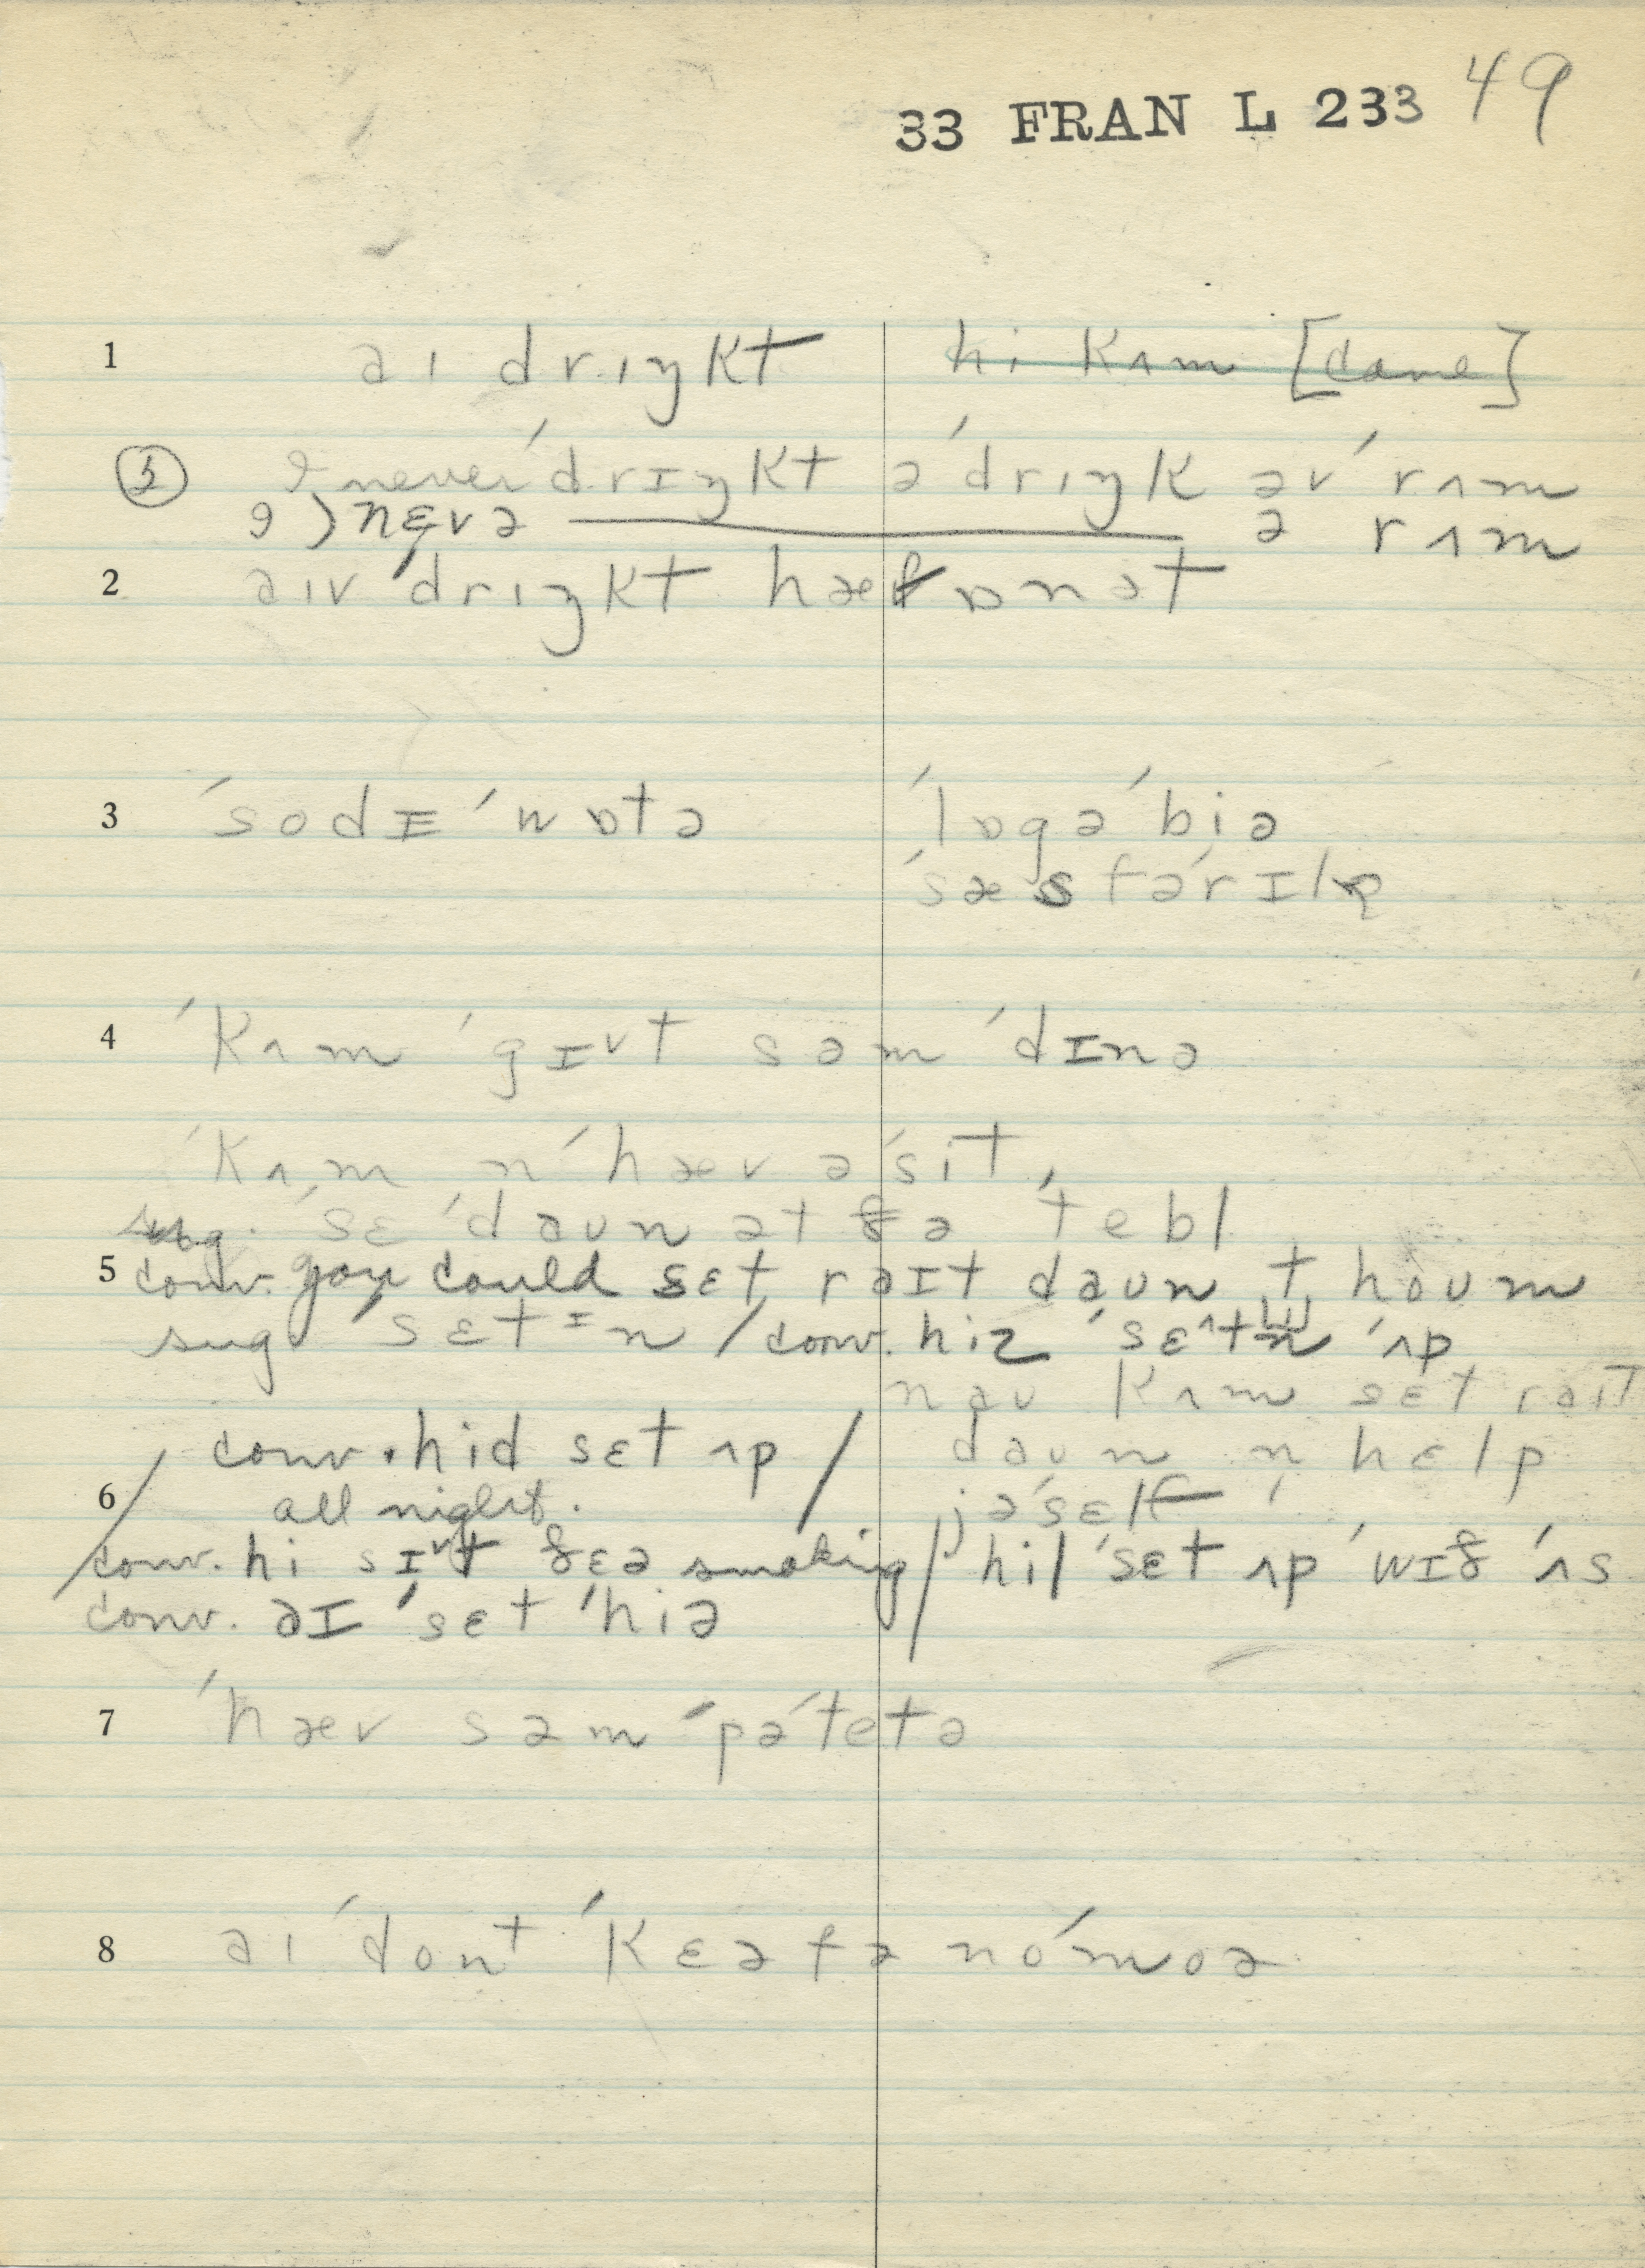 33 FRAN L 233 49
1 aɪ drɪŋkt hi kʌm [came]
I never ˈdrɪŋkt ə ˈdrɪŋk əv ˈrʌm
nɛvə ə rʌm
2 aɪv ˈdrɪŋkt hæf ɒn ət
3 ˈsodɪ ˈwɒtə ˈlɒgə ˈbiə
4 ˈkʌm ˈgɪᵛt səm ˈdɪnə
ˈkʌm n ˈhæv ə ˈsit,
sug. ˈsɛ ˈdaʊn ət ðə ˈtebl
5 conv. you could sɛt raɪt daʊn t hoʊm
sug ˈsɛtɪn / conv. hiz ˈsɛtn ˈʌp
naʊ kʌm sɛt raɪt
conv. hid sɛt ʌp / daʊn n hɛlp
6 all night. jəˈsɛlf
conv. hi sɪᵛt ðɛə smoking / hil ˈsɛt ʌp ˈwɪð ˈʌs
conv. aɪ ˈsɛt ˈhiə
7 ˈhæv səm ˈpəˈtetə
8 aɪ ˈdont ˈkɛə fə noˈmoə